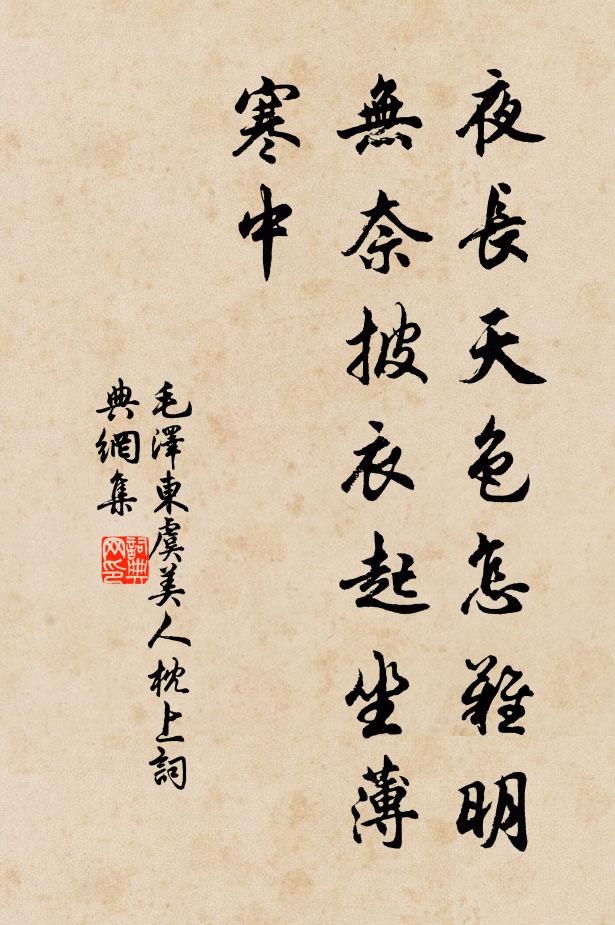 夜長天色怎難明
無奈披衣起坐薄
寒中
毛澤東虞美人枕上詞
典網集
詞典
网印